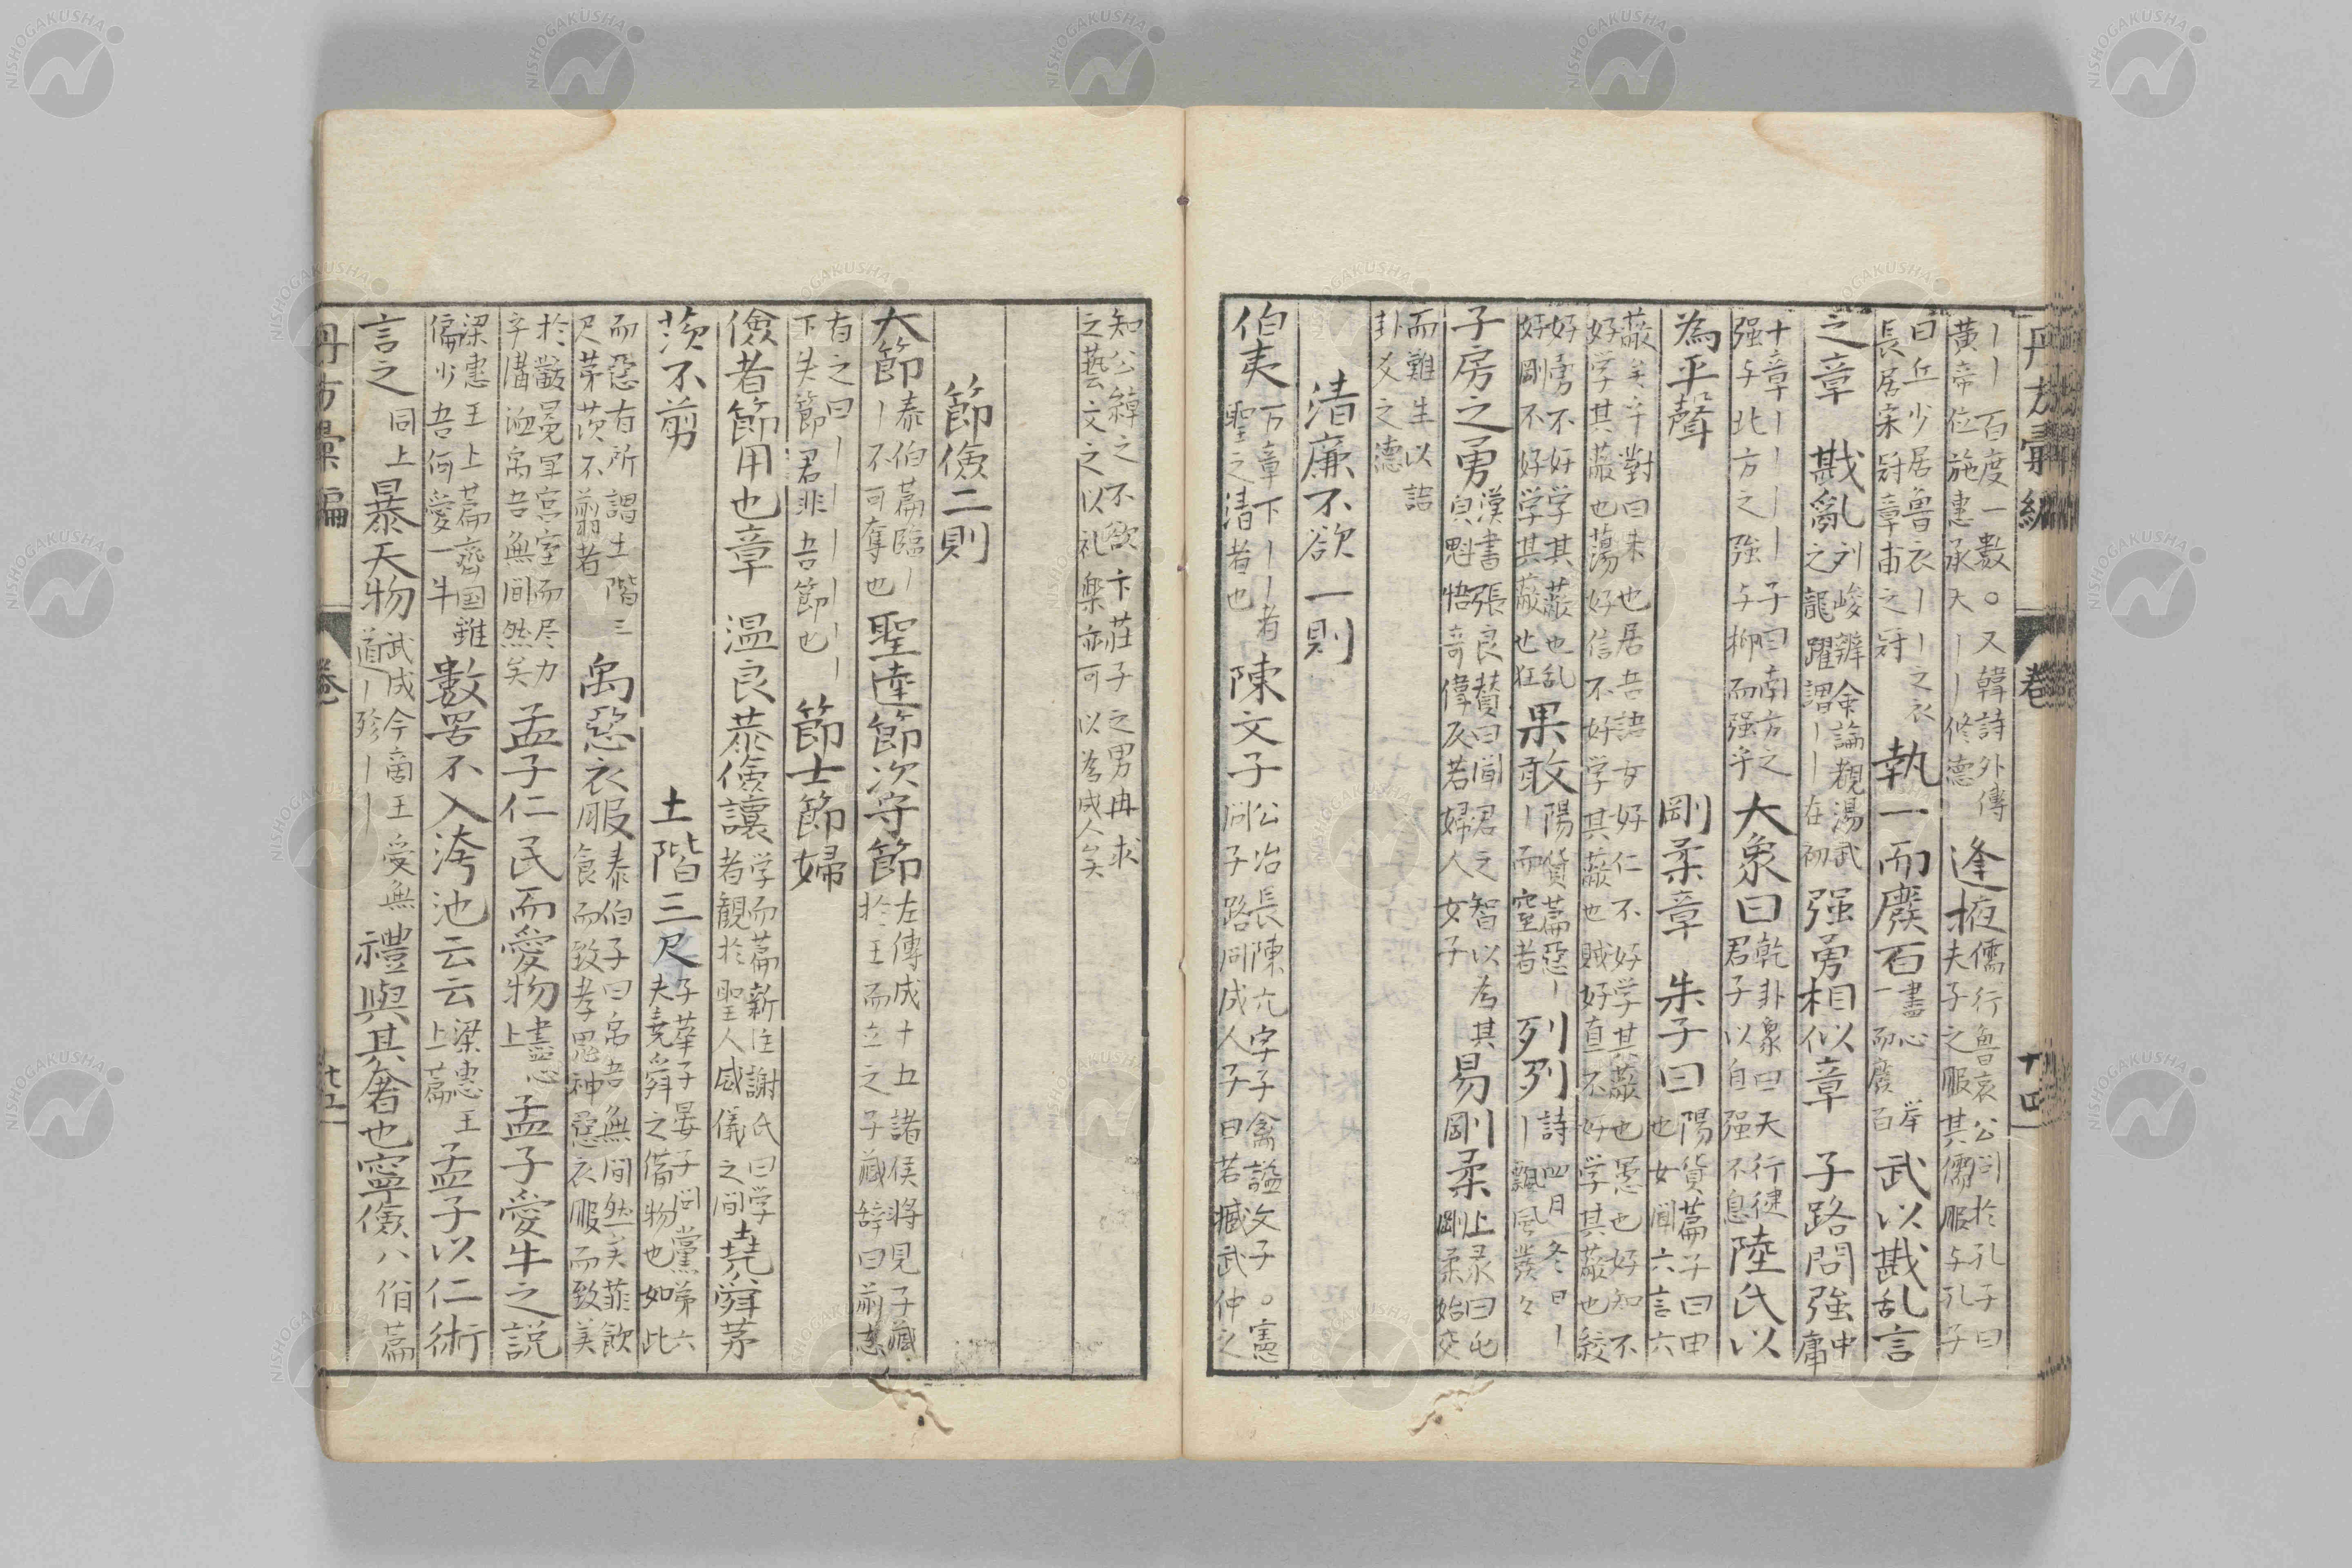 丹方彙編 卷 十四
〡〡百度一數○又韓詩外傳
黄帝位施惠承天〡〡修德
逢掖
儒行魯哀公问於孔子曰
夫子之服其儒服与孔子
曰丘少居魯衣〡〡之衣
長居宋冠章甫之冠
執一而廢百
盡心 举
一而廢百
武以戡乱言
之章 戡亂之龍躍
刘峻辨命論覩湯武
之龍躍謂〡〡在初
强勇相似章 子路問強
中庸
十章〡〡〡〡子曰南方之
强与北方之强与抑而强乎
大象曰
乾卦象曰天行健
君子以自强不息
陸氏以
為平聲 剛柔章 朱子曰
陽貨篇子曰由
也女闻六言六
蔽矣乎對曰未也居吾語女好仁不好学其蔽也愚也好知不
好学其蔽也蕩好信不好学其蔽也賊好直不好学其蔽也絞
好勇不好学其蔽也乱
好剛不好学其蔽也狂
果敢
陽貨篇惡〡
〡而窒者
列列
詩四月冬日〡
〡飄風發々
子房之勇
漢書張良賛曰闻君之智以为其
皃魁梧奇偉反若婦人女子
易剛柔
上彖曰屯
剛柔始交
而難生以詰
卦爻之德
清廉不欲一則
伯夷
万章下〡〡者
聖之清者也
陳文子
公冶長陳亢字子禽謚文子○憲
问子路问成人子曰若臧武仲之
知公綽之不欲卞莊子之勇冉求
之藝文之以礼樂亦可以为成人矣
節儉二則
大節
泰伯篇臨〡
〡不可奪也
聖達節次守節
左傳成十五諸侯將見子臧
於王而立之子臧辞曰前志
有之曰〡〡〡〡〡〡
下失節君非吾節也
節士節婦
儉者節用也章 温良恭儉讓
学而篇新注謝氏曰学
者観於聖人威儀之间
堯舜茅
茨不剪 土階三尺
子華子晏子问黨第六
夫堯舜之備物也如此
而惡有所謂土階三
尺茅茨不翦者
禹惡衣服
泰伯子曰禹吾無间然矣菲飲
食而致孝鬼神惡衣服而致美
於黻冕卑宮室而尽力
乎溝洫禹吾無间然矣
孟子仁民而愛物
盡心
上
孟子愛牛之説
梁惠王上篇齊国雖
偏少吾何愛一牛
數罟不入洿池云云
梁惠王
上篇
孟子以仁術
言之
同上
暴天物
武成今商王受無
道〡殄〡〡
禮與其奢也寧儉
八佾篇
丹方彙編 卷 十五